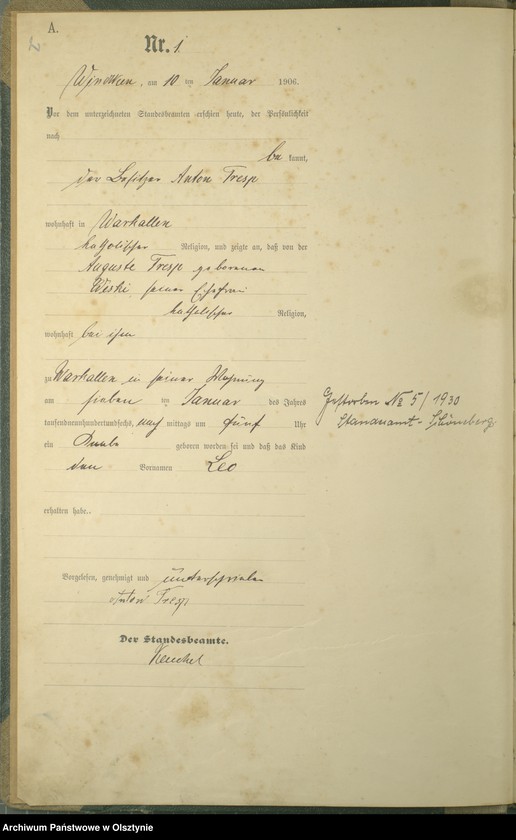 A.
2
Nr. 1.
Windken, am 10 ten Januar 1906.
Vor dem unterzeichneten Standesbeamten erschien heute, der Persönlichkeit
nach
be kannt,
der Besitzer Anton Tresp
wohnhaft in Warkallen
katholischer Religion, und zeigte an, daß von der
Auguste Tresp geborenen
Weski, seiner Ehefrau
katholischer Religion,
wohnhaft bei ihm
zu Warkallen in seiner Wohnung
am sieben ten Januar des Jahres
tausendneunhundertundsechs, nach mittags um fünf Uhr
ein Knabe geboren worden sei und daß das Kind
den Vornamen Leo
erhalten habe.
Vorgelesen, genehmigt und unterschrieben
Anton Tresp
Der Standesbeamte.
Gestorben No 5/1930
Standesamt - Schömberg
Archiwum Państwowe w Olsztynie